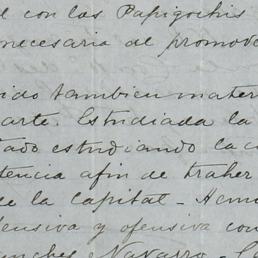 con las Papigochis
necesaria al promove
ido tambien mater
arte. Estudiada la
tado estudiando la c
tencia afin de traher
de la capital - Hem
fensiva y ofensiva con
Navarro